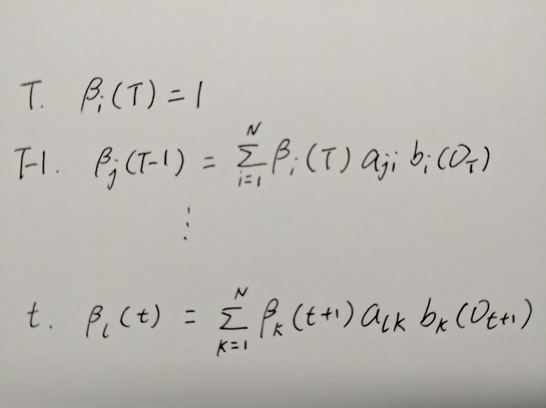 T. βᵢ(T) = 1
T-1. βⱼ(T-1) = Σᵢ₌₁ᴺ βᵢ(T) aⱼᵢ bᵢ(O_T)
⋮
t. β_l(t) = Σₖ₌₁ᴺ βₖ(t+1) a_lk bₖ(O_t+1)